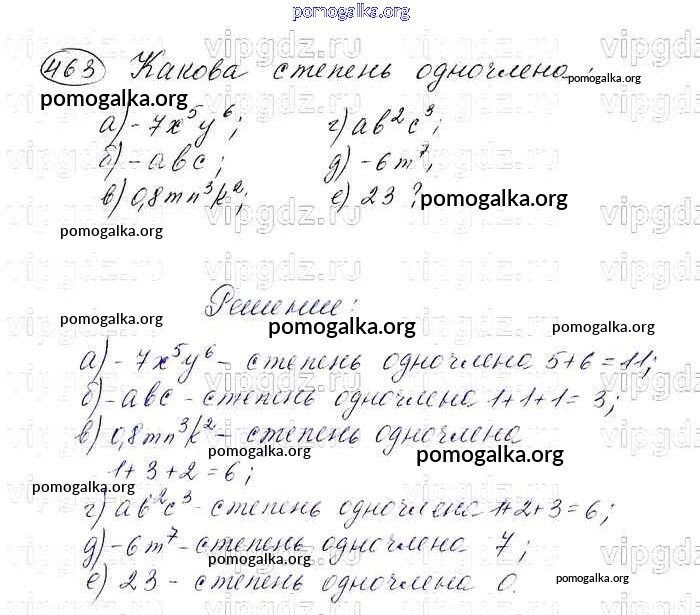 pomogalka.org
463 Какова степень одночлена:
pomogalka.org
pomogalka.org
а) -7x⁵y⁶; г) ab²c³;
б) -abc; д) -6m⁷;
в) 0,8mn³k²; е) 23 ?
pomogalka.org
pomogalka.org
Решение:
pomogalka.org
pomogalka.org
pomogalka.org
а) -7x⁵y⁶ - степень одночлена 5+6=11;
б) -abc - степень одночлена 1+1+1=3;
в) 0,8mn³k² - степень одночлена
pomogalka.org
pomogalka.org
1+3+2=6;
pomogalka.org
г) ab²c³ - степень одночлена 1+2+3=6;
д) -6m⁷ - степень одночлена 7;
pomogalka.org
е) 23 - степень одночлена 0.
pomogalka.org
vipgdz.ru